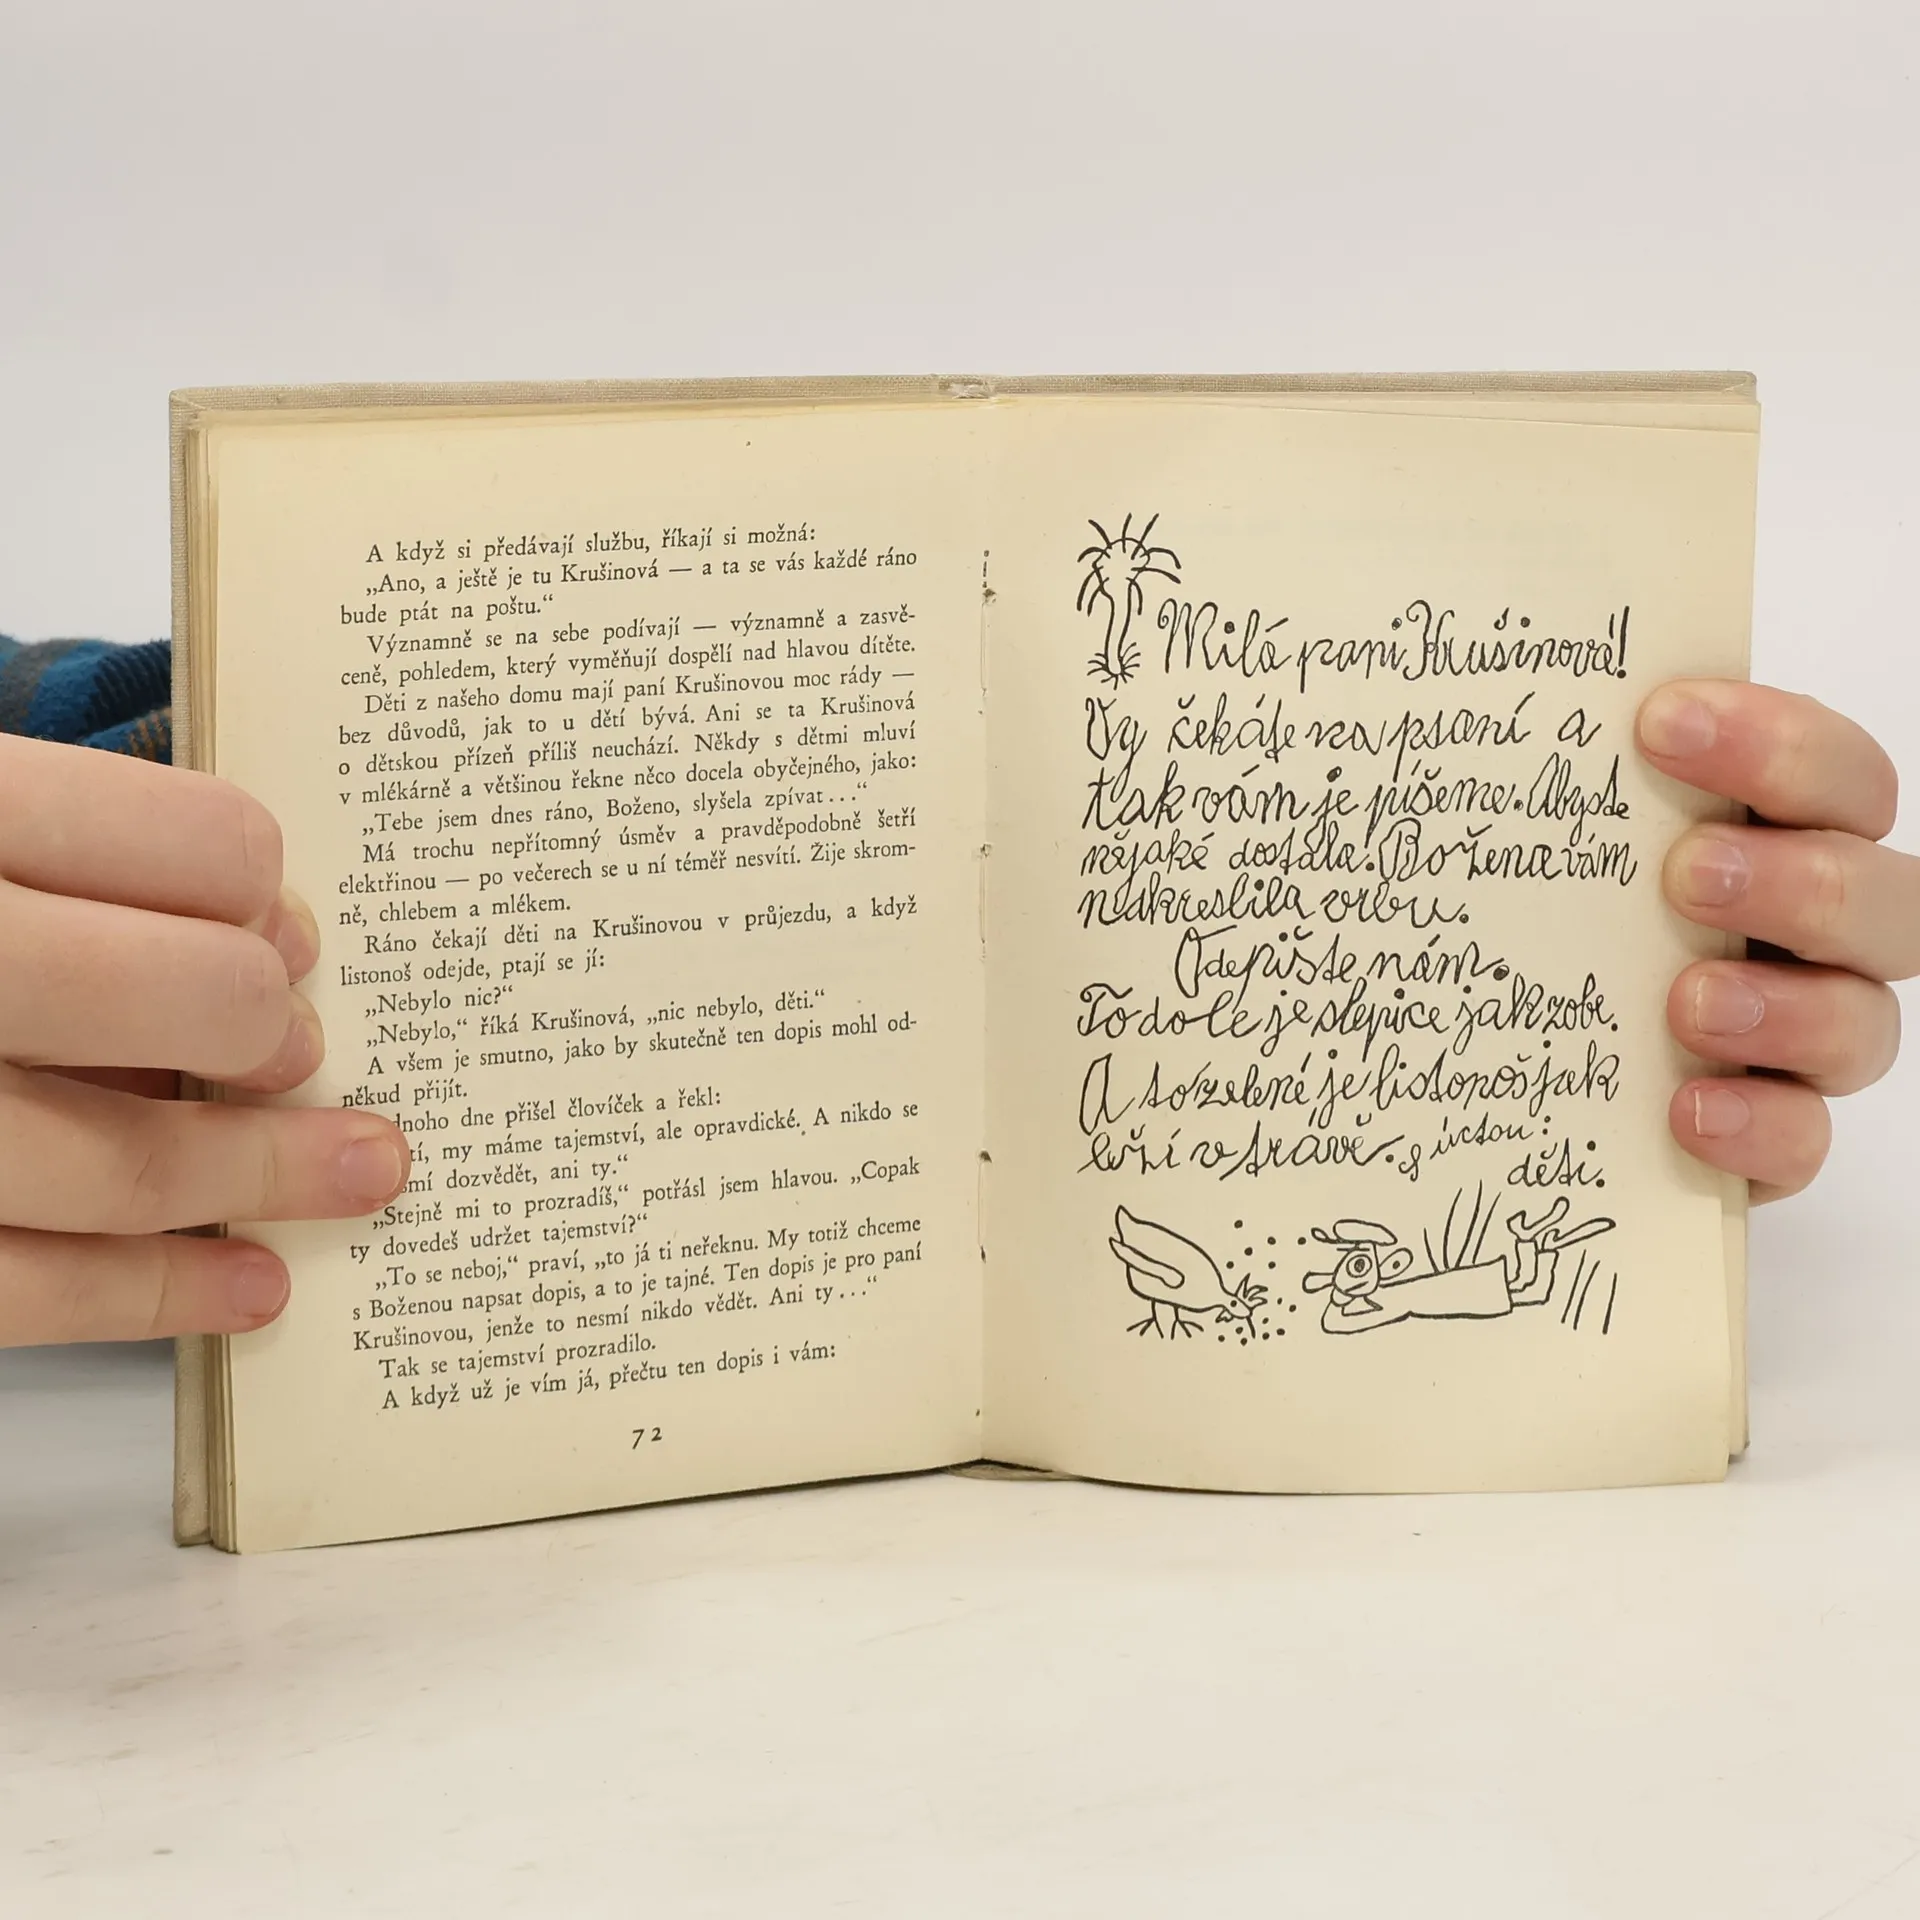 A když si předávají službu, říkají si možná:
„Ano, a ještě je tu Krušinová — a ta se vás každé ráno
bude ptát na poštu.“
Významně se na sebe podívají — významně a zasvě-
ceně, pohledem, který vyměňují dospělí nad hlavou dítěte.
Děti z našeho domu mají paní Krušinovou moc rády —
bez důvodů, jak to u dětí bývá. Ani se ta Krušinová
o dětskou přízeň příliš neuchází. Někdy s dětmi mluví
v mlékárně a většinou řekne něco docela obyčejného, jako:
„Tebe jsem dnes ráno, Boženo, slyšela zpívat...“
Má trochu nepřítomný úsměv a pravděpodobně šetří
elektřinou — po večerech se u ní téměř nesvítí. Žije skrom-
ně, chlebem a mlékem.
Ráno čekají děti na Krušinovou v průjezdu, a když
listonoš odejde, ptají se jí:
„Nebylo nic?“
„Nebylo,“ říká Krušinová, „nic nebylo, děti.“
A všem je smutno, jako by skutečně ten dopis mohl od-
někud přijít.
dnoho dne přišel človíček a řekl:
tí, my máme tajemství, ale opravdické. A nikdo se
smí dozvědět, ani ty.“
„Stejně mi to prozradíš,“ potřásl jsem hlavou. „Copak
ty dovedeš udržet tajemství?“
„To se neboj,“ praví, „to já ti neřeknu. My totiž chceme
s Boženou napsat dopis, a to je tajné. Ten dopis je pro paní
Krušinovou, jenže to nesmí nikdo vědět. Ani ty...“
Tak se tajemství prozradilo.
A když už je vím já, přečtu ten dopis i vám:
72
Milá pani Krušinová!
Vy čekáte na psaní a
tak vám je píšeme. Abyste
nějaké dostala. Božena vám
nakreslila vrbu.
Odepište nám.
To dole je slepice jak zobe.
A to zelené je listonoš jak
leží v trávě. s úctou:
děti.